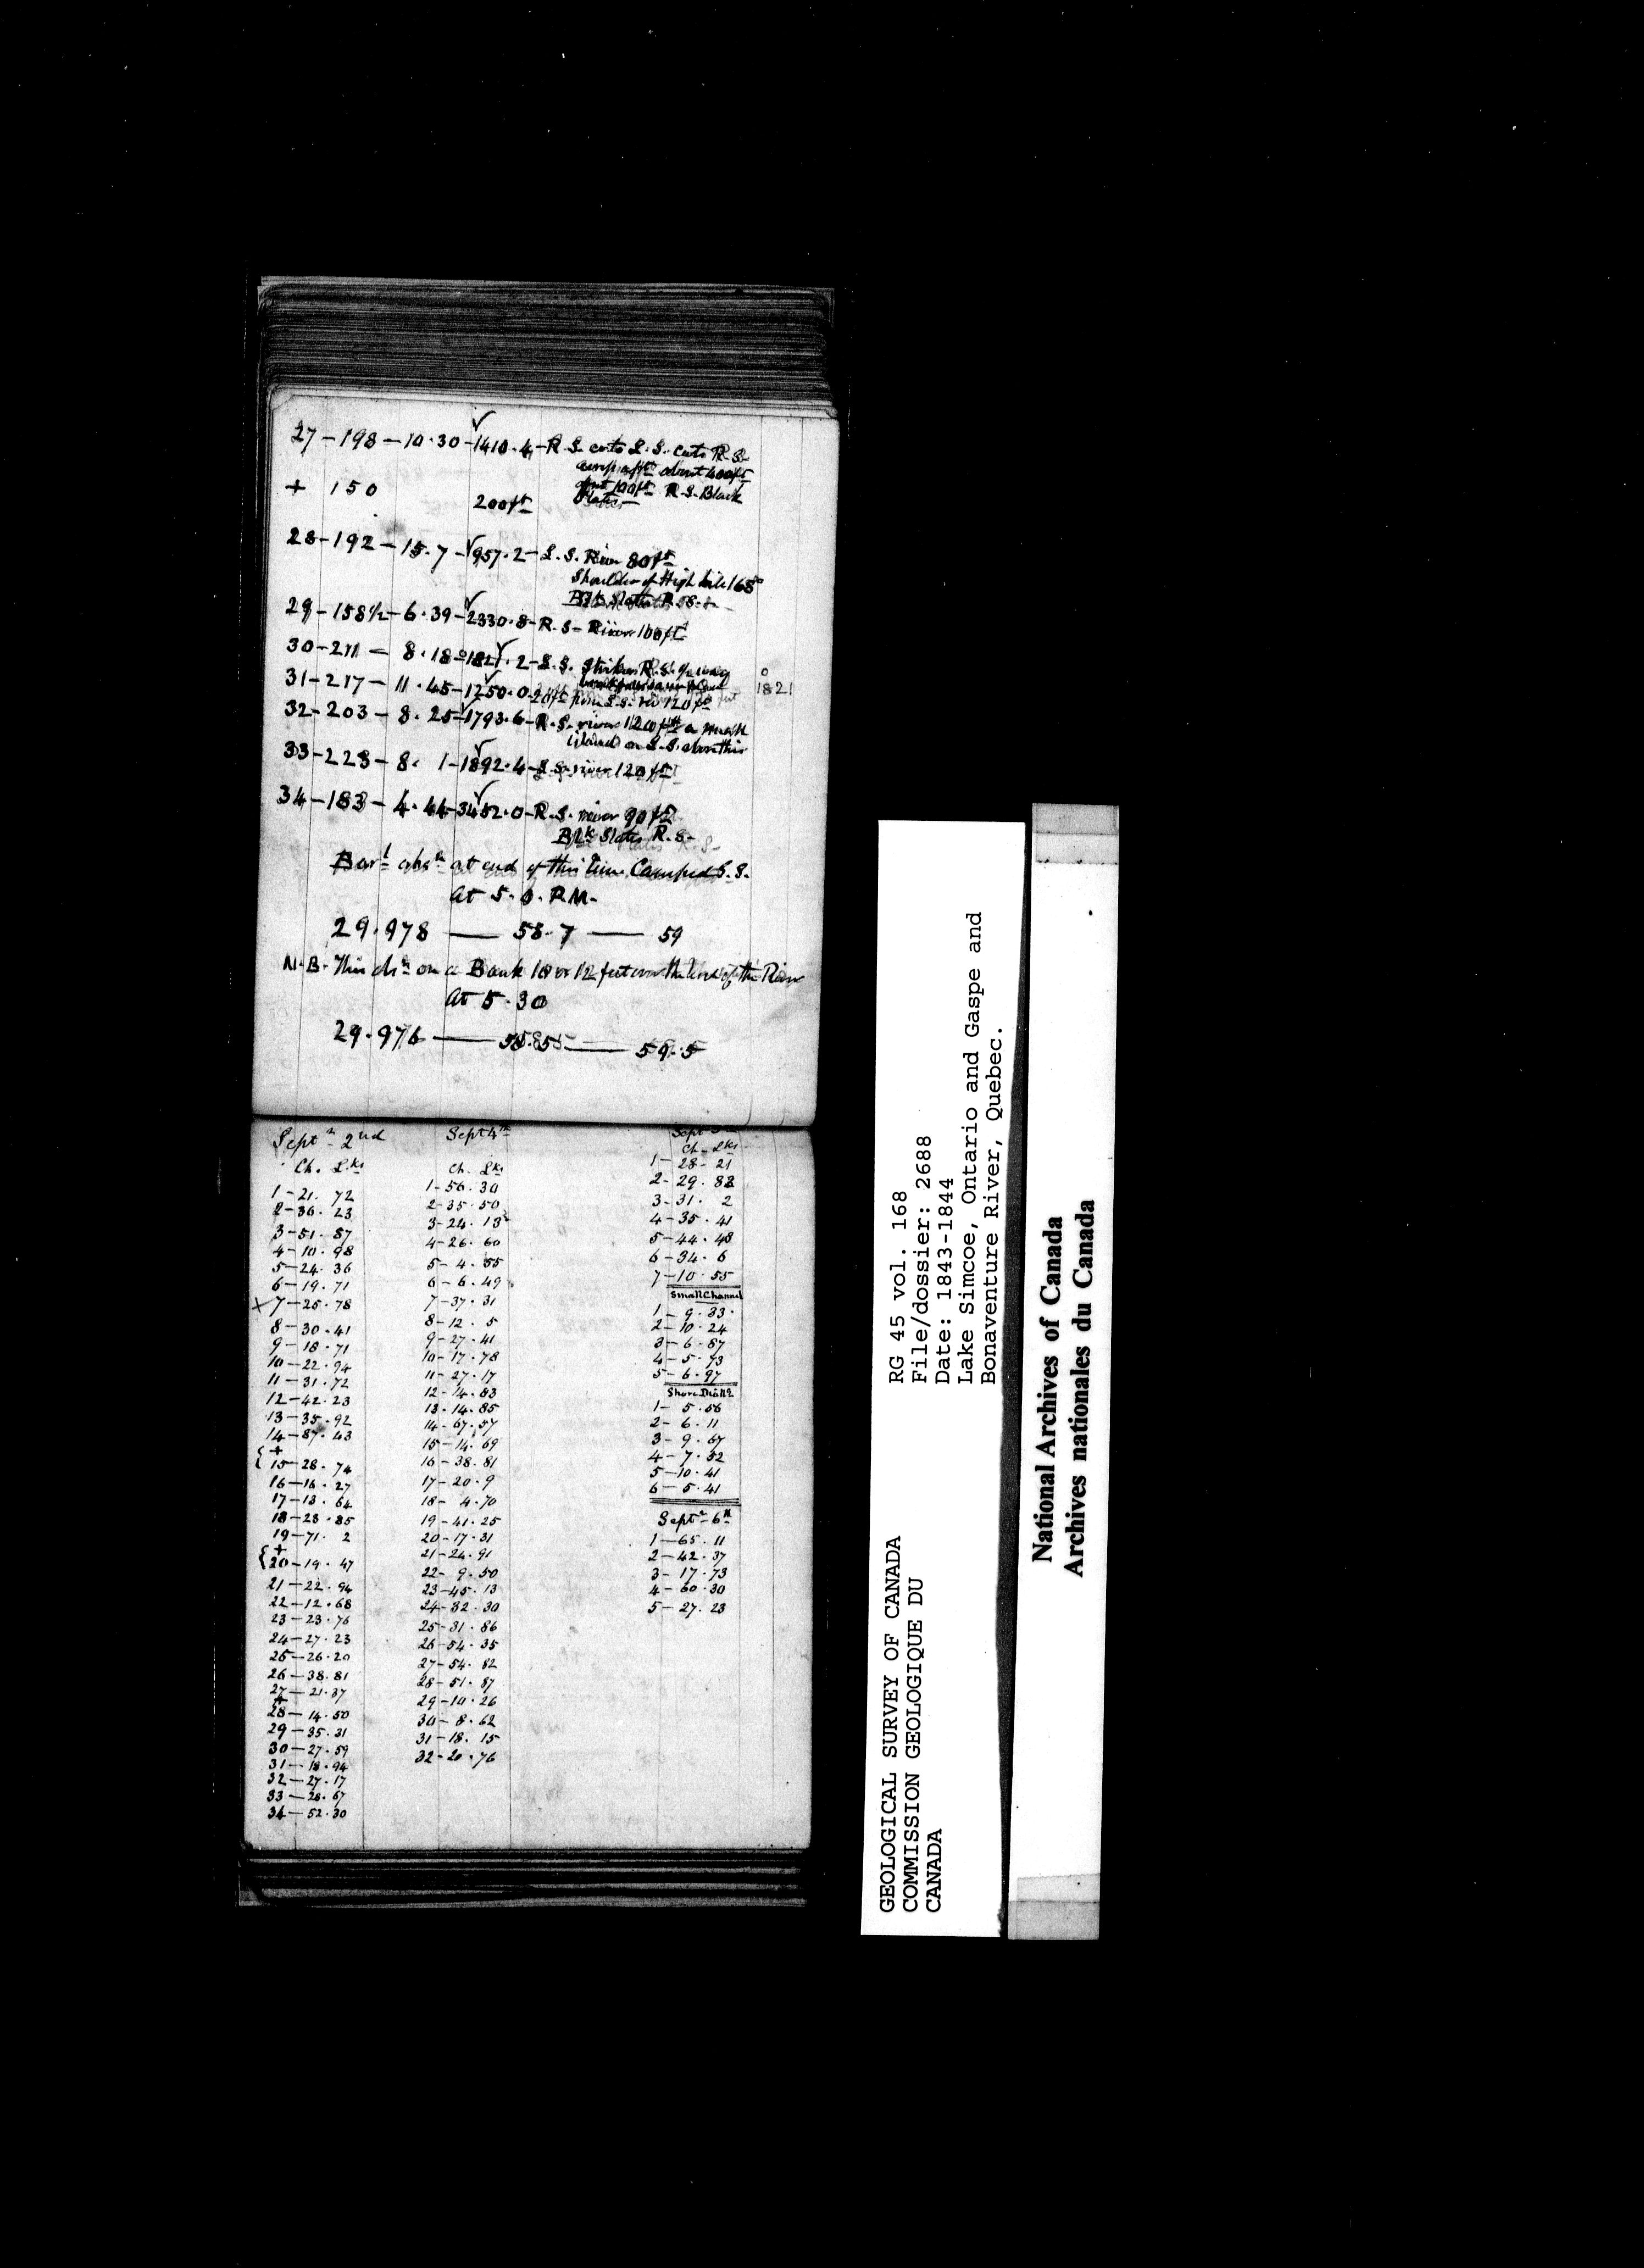 27-198-10.30-1410.4-R.S. cuts L.S. cuts R.S.
about 400ft
+ 150 100ft R.S. Black
200ft Slates
28-192-15.7-957.2-L.S. River 80ft
Shoulder of High hill 168°
Blk Slates R.S.
29-158½-6.39-2330.8-R.S-River 100ft
30-211-8.18-1821.2-L.S. Strikes R.S.
31-217-11.45-1250.0-20ft from L.S. riv 120ft
1821
32-203-8.25-1793.6-R.S. river 120ft a small
island on L.S. above this
33-223-8.1-1892.4-L.S. river 120ft
34-183-4.44-3452.0-R.S. river 90ft
Blk Slates R.S-
Barl obsn at end of this line Camped S.S.
At 5.0. P.M.
29.978 — 58.7 — 59
N.B. This obn on a Bank 10 or 12 feet over the level of the River
At 5.30
29.976 — 58.5 — 59.5
Septr 2nd
Ch. Lks
1-21.72
2-36.23
3-51.87
4-10.98
5-24.36
6-19.71
x 7-25.78
8-30.41
9-18.71
10-22.94
11-31.72
12-42.23
13-35.92
14-87.43
{+
15-28.74
16-16.27
17-13.64
18-23.85
19-71.2
{+
20-19.47
21-22.94
22-12.68
23-23.76
24-27.23
25-26.20
26-38.81
27-21.37
+
28-14.50
29-35.31
30-27.59
31-18.94
32-27.17
33-28.67
34-52.30
Sept 4th
Ch. Lks
1-56.30
2-35.50
3-24.13
4-26.60
5-4.55
6-6.49
7-37.31
8-12.5
9-27.41
10-17.78
11-27.17
12-14.83
13-14.85
14-67.57
15-14.69
16-38.81
17-20.9
18-4.70
19-41.25
20-17.31
21-24.91
22-9.50
23-45.13
24-32.30
25-31.86
26-54.35
27-54.82
28-51.87
29-10.26
30-8.62
31-18.15
32-20.76
Sept
Ch-Lks
1-28-21
2-29.82
3-31.2
4-35.41
5-44.48
6-34.6
7-10.55
Small Channel
1-9.33
2-10.24
3-6.87
4-5.73
5-6.97
Shore
1-5.56
2-6.11
3-9.67
4-7.52
5-10.41
6-5.41
Septr 6th
1-65.11
2-42.37
3-17.73
4-60.30
5-27.23
GEOLOGICAL SURVEY OF CANADA
COMMISSION GEOLOGIQUE DU
CANADA
RG 45 vol. 168
File/dossier: 2688
Date: 1843-1844
Lake Simcoe, Ontario and Gaspe and
Bonaventure River, Quebec.
National Archives of Canada
Archives nationales du Canada